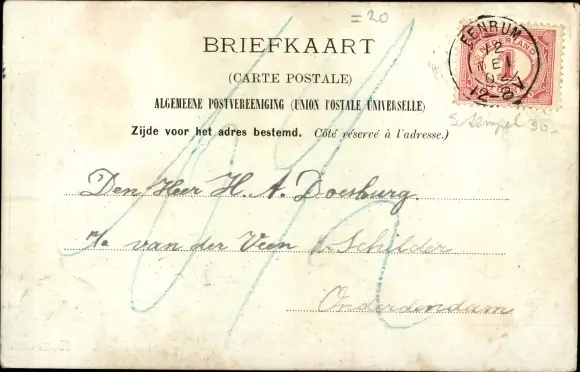 = 20
BRIEFKAART
(CARTE POSTALE)
ALGEMEENE POSTVEREENIGING (UNION POSTALE UNIVERSELLE)
Zijde voor het adres bestemd. Côté réservé à l'adresse.)
EENRUM
12-8V
NEDERLAND
1
Stempel 35,-
Den Heer H. A. Doesburg.
p/a van der Veen Schilder
Onderdendam